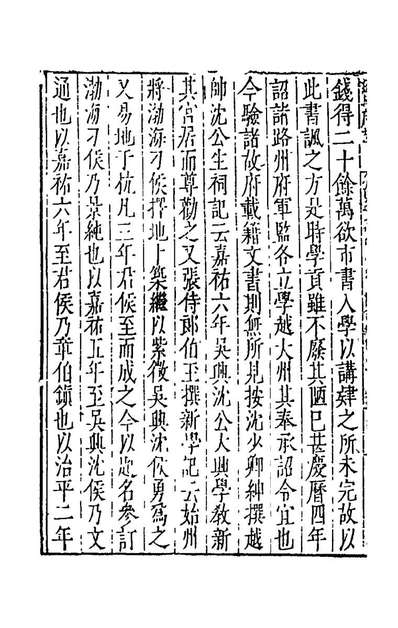 錢得二十餘萬欲市書入學以講肄之所未完故以
此書諷之方是時學貢雖不廢其陋已甚慶曆四年
詔諸路州府軍監各立學越大州其奉承詔令宜也
今驗諸故府載籍文書則無所見按沈少卿紳撰越
帥沈公生祠記云嘉祐六年吳興沈公大興學敎新
其宮居而尊勸之又張侍郎伯玉撰新學記云始州
將渤海刁侯擇地卜築繼以紫微吳興沈侯勇爲之
又易地于杭凡三年君侯至而成之今以題名參訂
渤海刁侯乃景純也以嘉祐五年至吳興沈侯乃文
通也以嘉祐六年至君侯乃章伯鎮也以治平二年